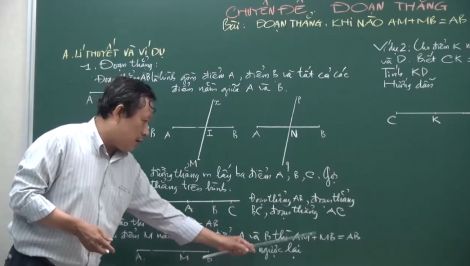 CHUYÊN ĐỀ: ĐOẠN THẲNG
Bài: ĐOẠN THẲNG. KHI NÀO AM+MB=AB
A. LÍ THUYẾT VÀ VÍ DỤ
1. Đoạn thẳng:
Đoạn AB là hình gồm điểm A, điểm B và tất cả các
điểm nằm giữa A và B.
A
x
A I B
M
P
A N B
q
đường thẳng m lấy ba điểm A, B, C. Gọi
thẳng trên hình.
B C
Đoạn thẳng AB, đoạn thẳng
BC, đoạn thẳng AC
AB
điểm M A và B thì AM+MB=AB
ngược lại
A M B
Ví dụ 2: Cho điểm K
và D. Biết CK=
Tính KD
Hướng dẫn
C K